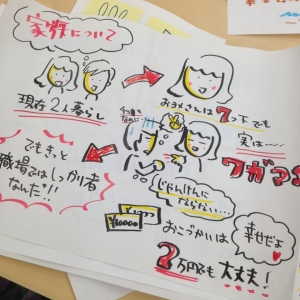 家族について
現在2人暮らし
お嫁さんは7つ下でも
実は……
ワガママ
じゃんけんに
ならない……
10000
おこづかいは
2万円でも大丈夫!
幸せだよ
でもきっと
職場ではしっかり者
なんだ!!